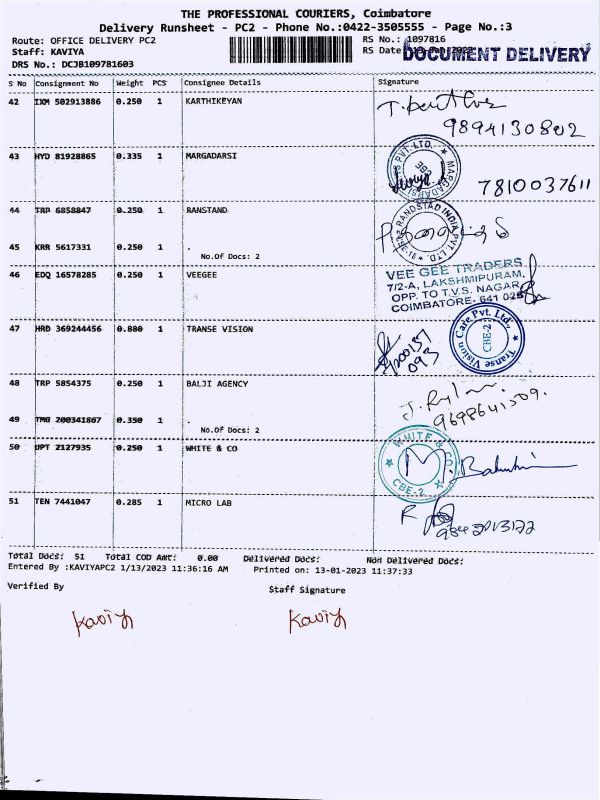 THE PROFESSIONAL COURIERS, Coimbatore
Delivery Runsheet - PC2 - Phone No.:0422-3505555 - Page No.:3
Route: OFFICE DELIVERY PC2 RS No.: 1097816
Staff: KAVIYA RS Date
DOCUMENT DELIVERY
DRS No.: DCJB109781603
S No Consignment No Weight PCS Consignee Details Signature
42 IXM 502913886 0.250 1 KARTHIKEYAN
9894130802
43 HYD 81928865 0.335 1 MARGADARSI
MARGADARSI PVT. LTD.
7810037611
44 TRP 6858847 0.250 1 RANSTAND
RANDSTAD INDIA PVT. LTD.
45 KRR 5617331 0.250 1 .
No.Of Docs: 2
46 EDQ 16578285 0.250 1 VEEGEE
VEE GEE TRADERS
7/2-A, LAKSHMIPURAM,
OPP. TO T.V.S. NAGAR,
COIMBATORE- 641 025
47 HRD 369244456 0.880 1 TRANSE VISION
Transe Vision Care Pvt. Ltd.
CBE-2
48 TRP 5854375 0.250 1 BALJI AGENCY
9698641509.
49 TMG 200341867 0.350 1 .
No.Of Docs: 2
50 UPT 2127935 0.250 1 WHITE & CO
WHITE & CO
CBE-2
51 TEN 7441047 0.285 1 MICRO LAB
9842013122
Total Docs: 51 Total COD Amt: 0.00 Delivered Docs: Non Delivered Docs:
Entered By :KAVIYAPC2 1/13/2023 11:36:16 AM Printed on: 13-01-2023 11:37:33
Verified By Staff Signature
Kaviya Kaviya